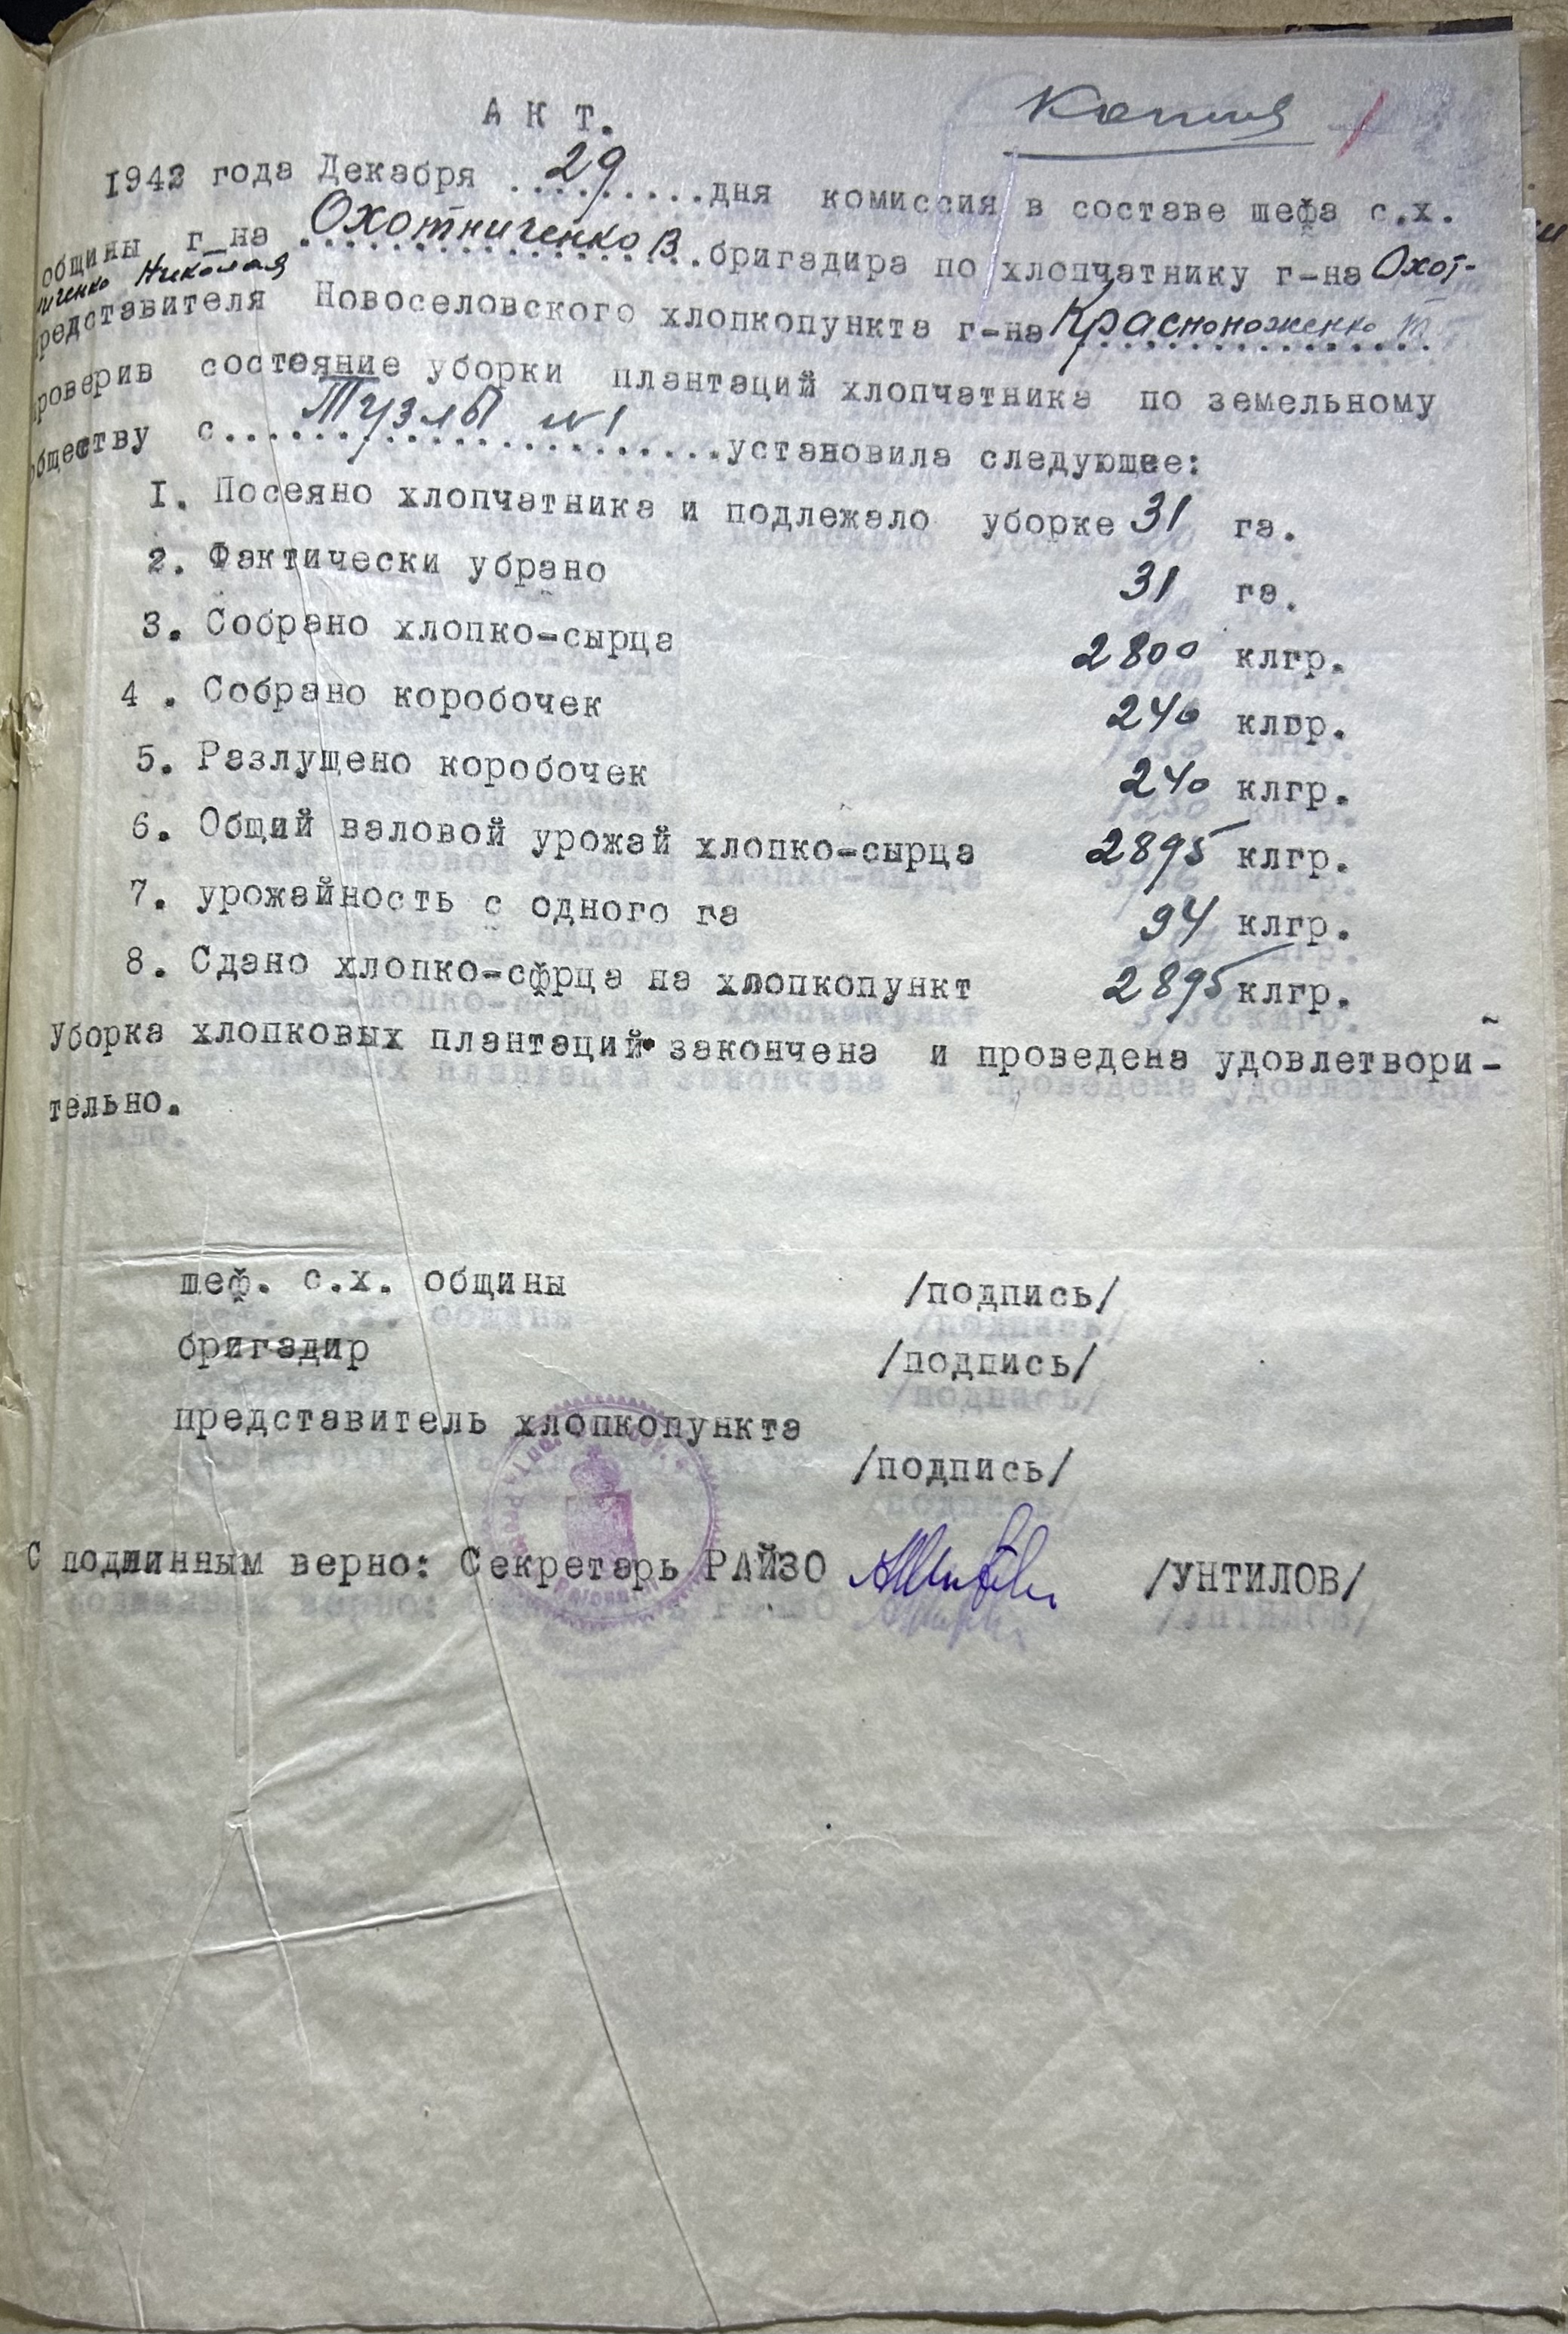 Копия
А К Т.
1942 года Декабря ...29......дня комиссия в составе шефа с.х.
общины г-на Охотниченко В. бригадира по хлопчатнику г-на Охот-
ниченко Николая
редставителя Новоселовского хлопкопункта г-на Красноноженко Т
роверив состояние уборки плантаций хлопчатника по земельному
обществу с....Тузлы №1....установила следующее:
1. Посеяно хлопчатника и подлежало уборке 31 га.
2. Фактически убрано 31 га.
3. Собрано хлопко-сырца 2800 клгр.
4 . Собрано коробочек 240 клгр.
5. Разлущено коробочек 240 клгр.
6. Общий валовой урожай хлопко-сырца 2895 клгр.
7. урожайность с одного га 94 клгр.
8. Сдано хлопко-сфрца на хлопкопункт 2895 клгр.
Уборка хлопковых плантаций закончена и проведена удовлетвори-
тельно.
шеф. с.х. общины /подпись/
бригадир /подпись/
представитель хлопкопункта
/подпись/
С подлинным верно: Секретарь РАЙЗО /УНТИЛОВ/